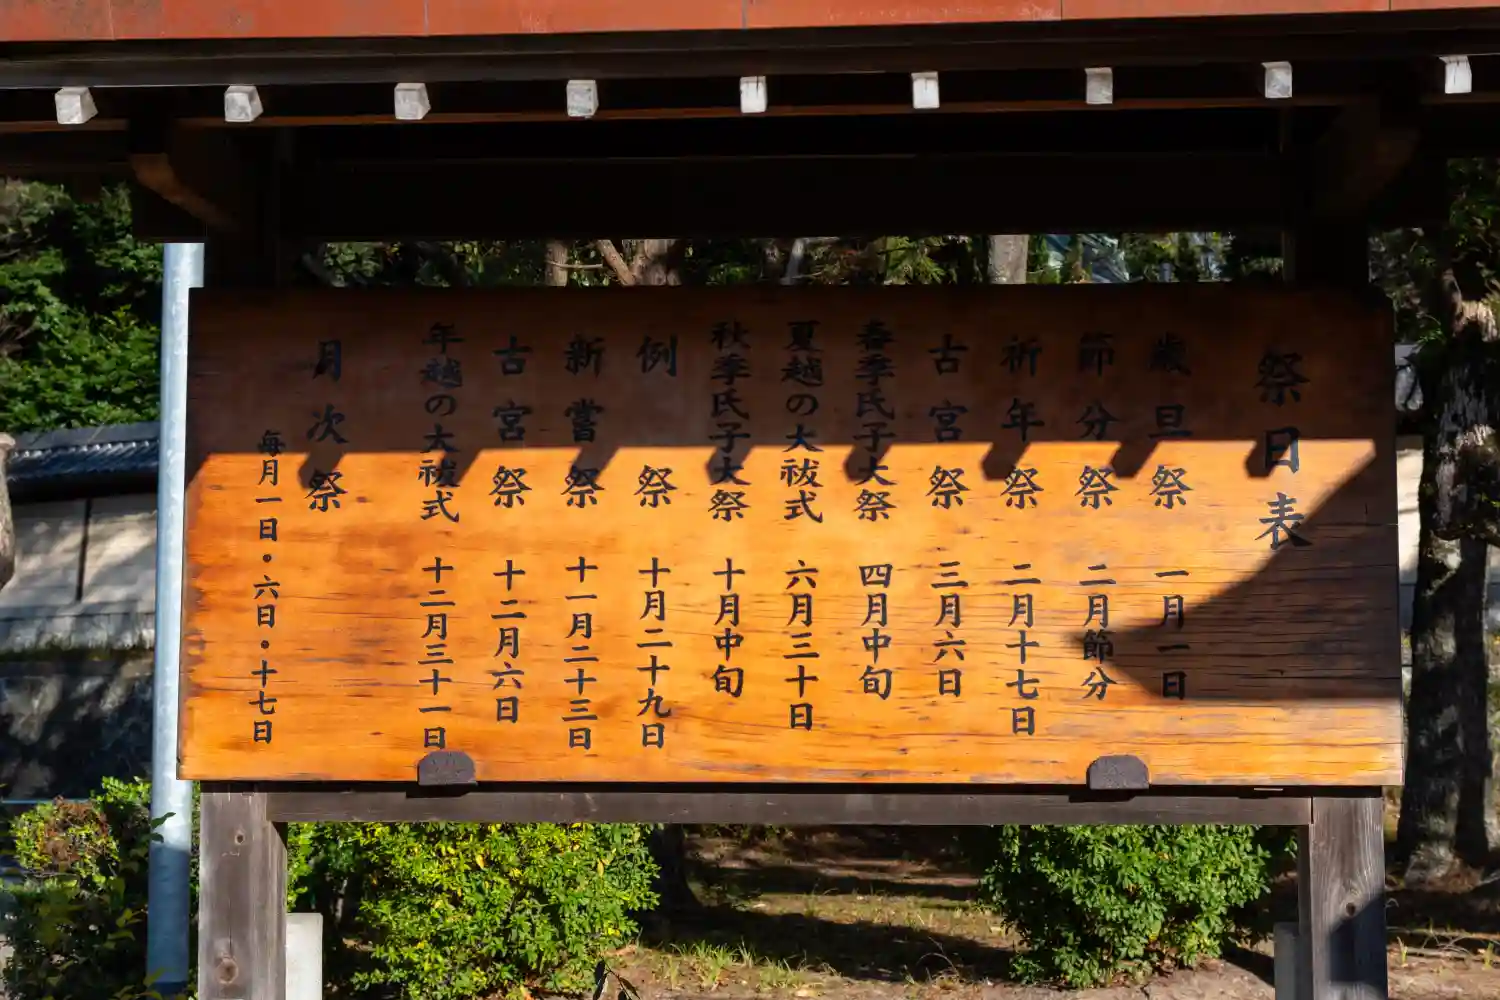 祭日表
歳旦祭 一月一日
節分祭 二月節分
祈年祭 二月十七日
古宮祭 三月六日
春季氏子大祭 四月中旬
夏越の大祓式 六月三十日
秋季氏子大祭 十月中旬
例祭 十月二十九日
新嘗祭 十一月二十三日
古宮祭 十二月六日
年越の大祓式 十二月三十一日
月次祭
毎月一日・六日・十七日